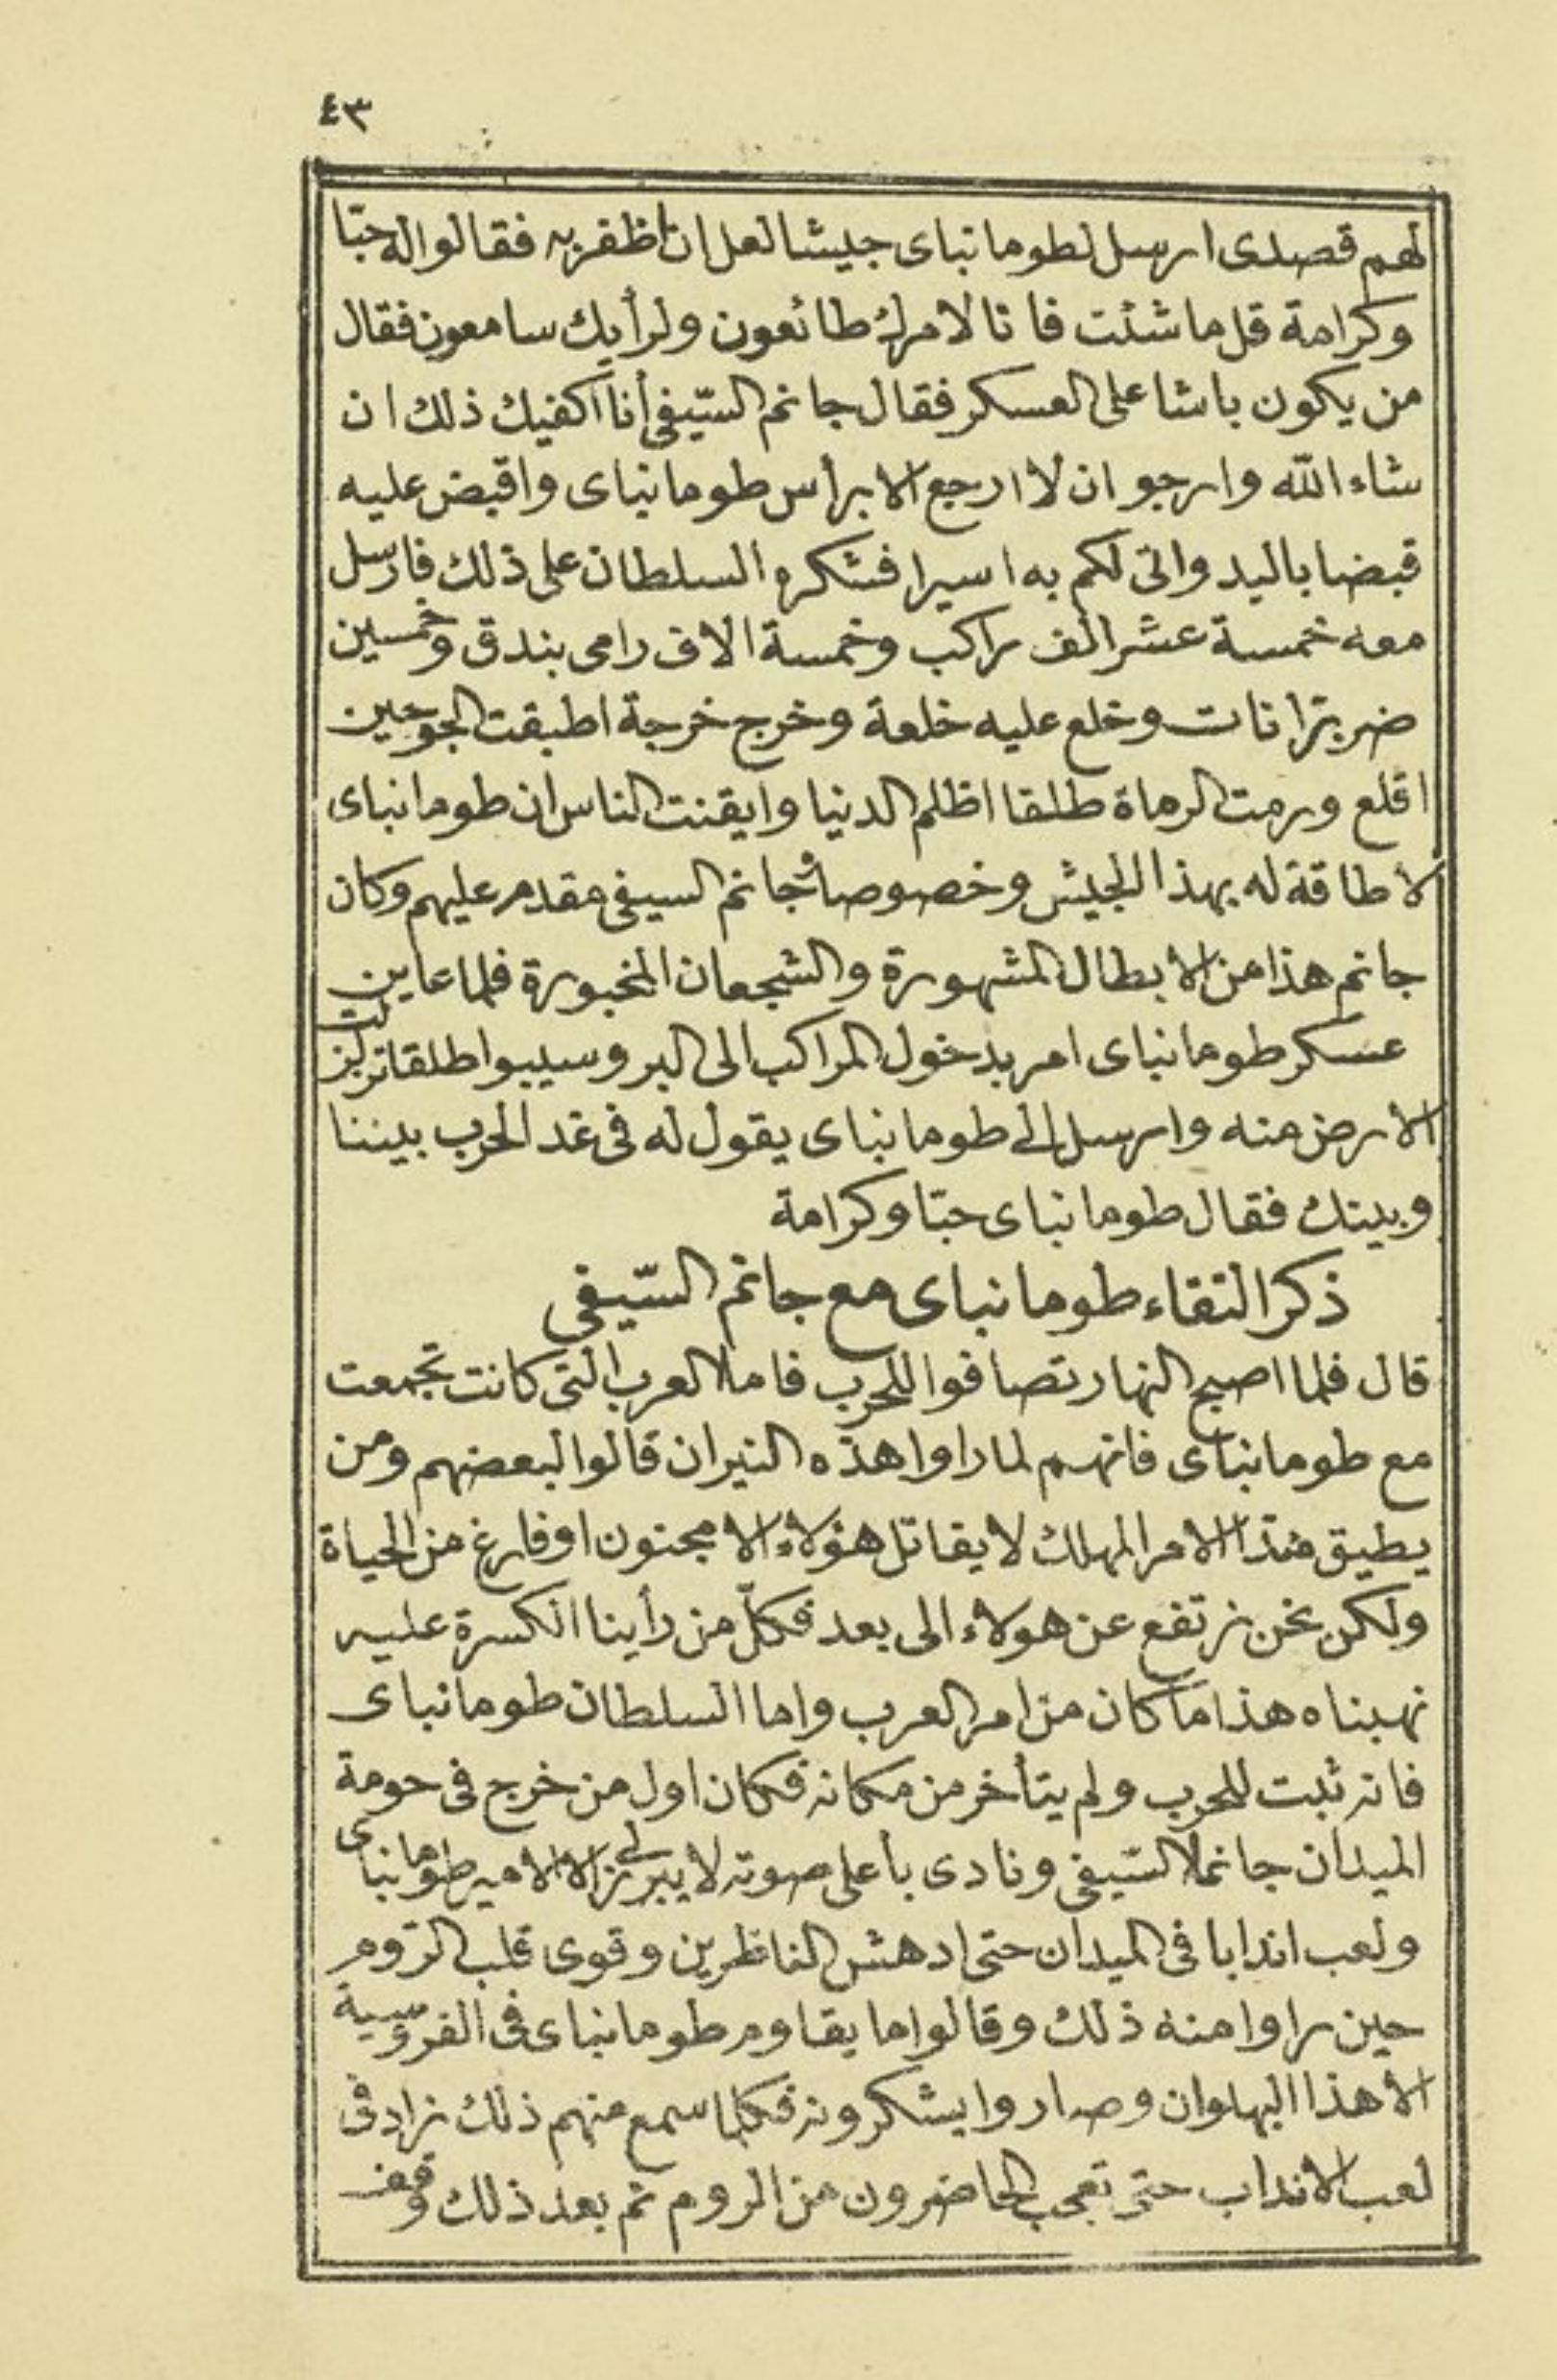 ٤٣
لهم قصدى ارسل لطومانباى جيشا لعل ان اظفر به فقالوا له حبّا
وكرامة قل ما شئت فانا لامرك طائعون ولرأيك سامعون فقال
من يكون باشا على العسكر فقال جانم السّيفى أنا أكفيك ذلك ان
شاء الله وارجو ان لا ارجع الا برأس طومانباى واقبض عليه
قبضا باليد واتى لكم به اسيرا فشكره السلطان على ذلك فارسل
معه خمسة عشر الف راكب وخمسة الاف رامى بندق وخمسين
ضربزانات وخلع عليه خلعة وخرج خرجة اطبقت الجو حين
اقلع ورمت الرماة طلقا اظلم الدنيا وايقنت الناس ان طومانباى
لا طاقة له بهذا الجيش وخصوصا جانم السيفى مقدم عليهم وكان
جانم هذا من الابطال المشهورة والشجعان المخبورة فلما عاين
عسكر طومانباى امر بدخول المراكب الى البر وسيبوا طلقا تزلزلت
الارض منه وارسل الى طومانباى يقول له فى غد الحرب بيننا
وبينك فقال طومانباى حبّا وكرامة
ذكر التقاء طومانباى مع جانم السّيفى
قال فلما اصبح النهار تصافوا للحرب فاما العرب التى كانت تجمعت
مع طومانباى فانهم لما راوا هذه النيران قالوا لبعضهم ومن
يطيق هذا الامر المهلك لا يقاتل هؤلاء الا مجنون او فارغ من الحياة
ولكن نحن نرتفع عن هولاء الى بعد فكلّ من رأينا الكسرة عليه
نهبناه هذا ما كان من امر العرب واما السلطان طومانباى
فانه ثبت للحرب ولم يتأخر من مكانه فكان اول من خرج فى حومة
الميدان جانم السّيفى ونادى بأعلى صوته لا يبرز لى الا الامير طومانباى
ولعب اندابا فى الميدان حتى ادهش الناظرين وقوى قلب الرّوم
حين راوا منه ذلك وقالوا ما يقاوم طومانباى فى الفروسية
الا هذا البهلوان وصاروا يشكرونه فكلما سمع منهم ذلك زاد فى
لعب الانداب حتى تعجب الحاضرون من الروم ثم بعد ذلك وقف